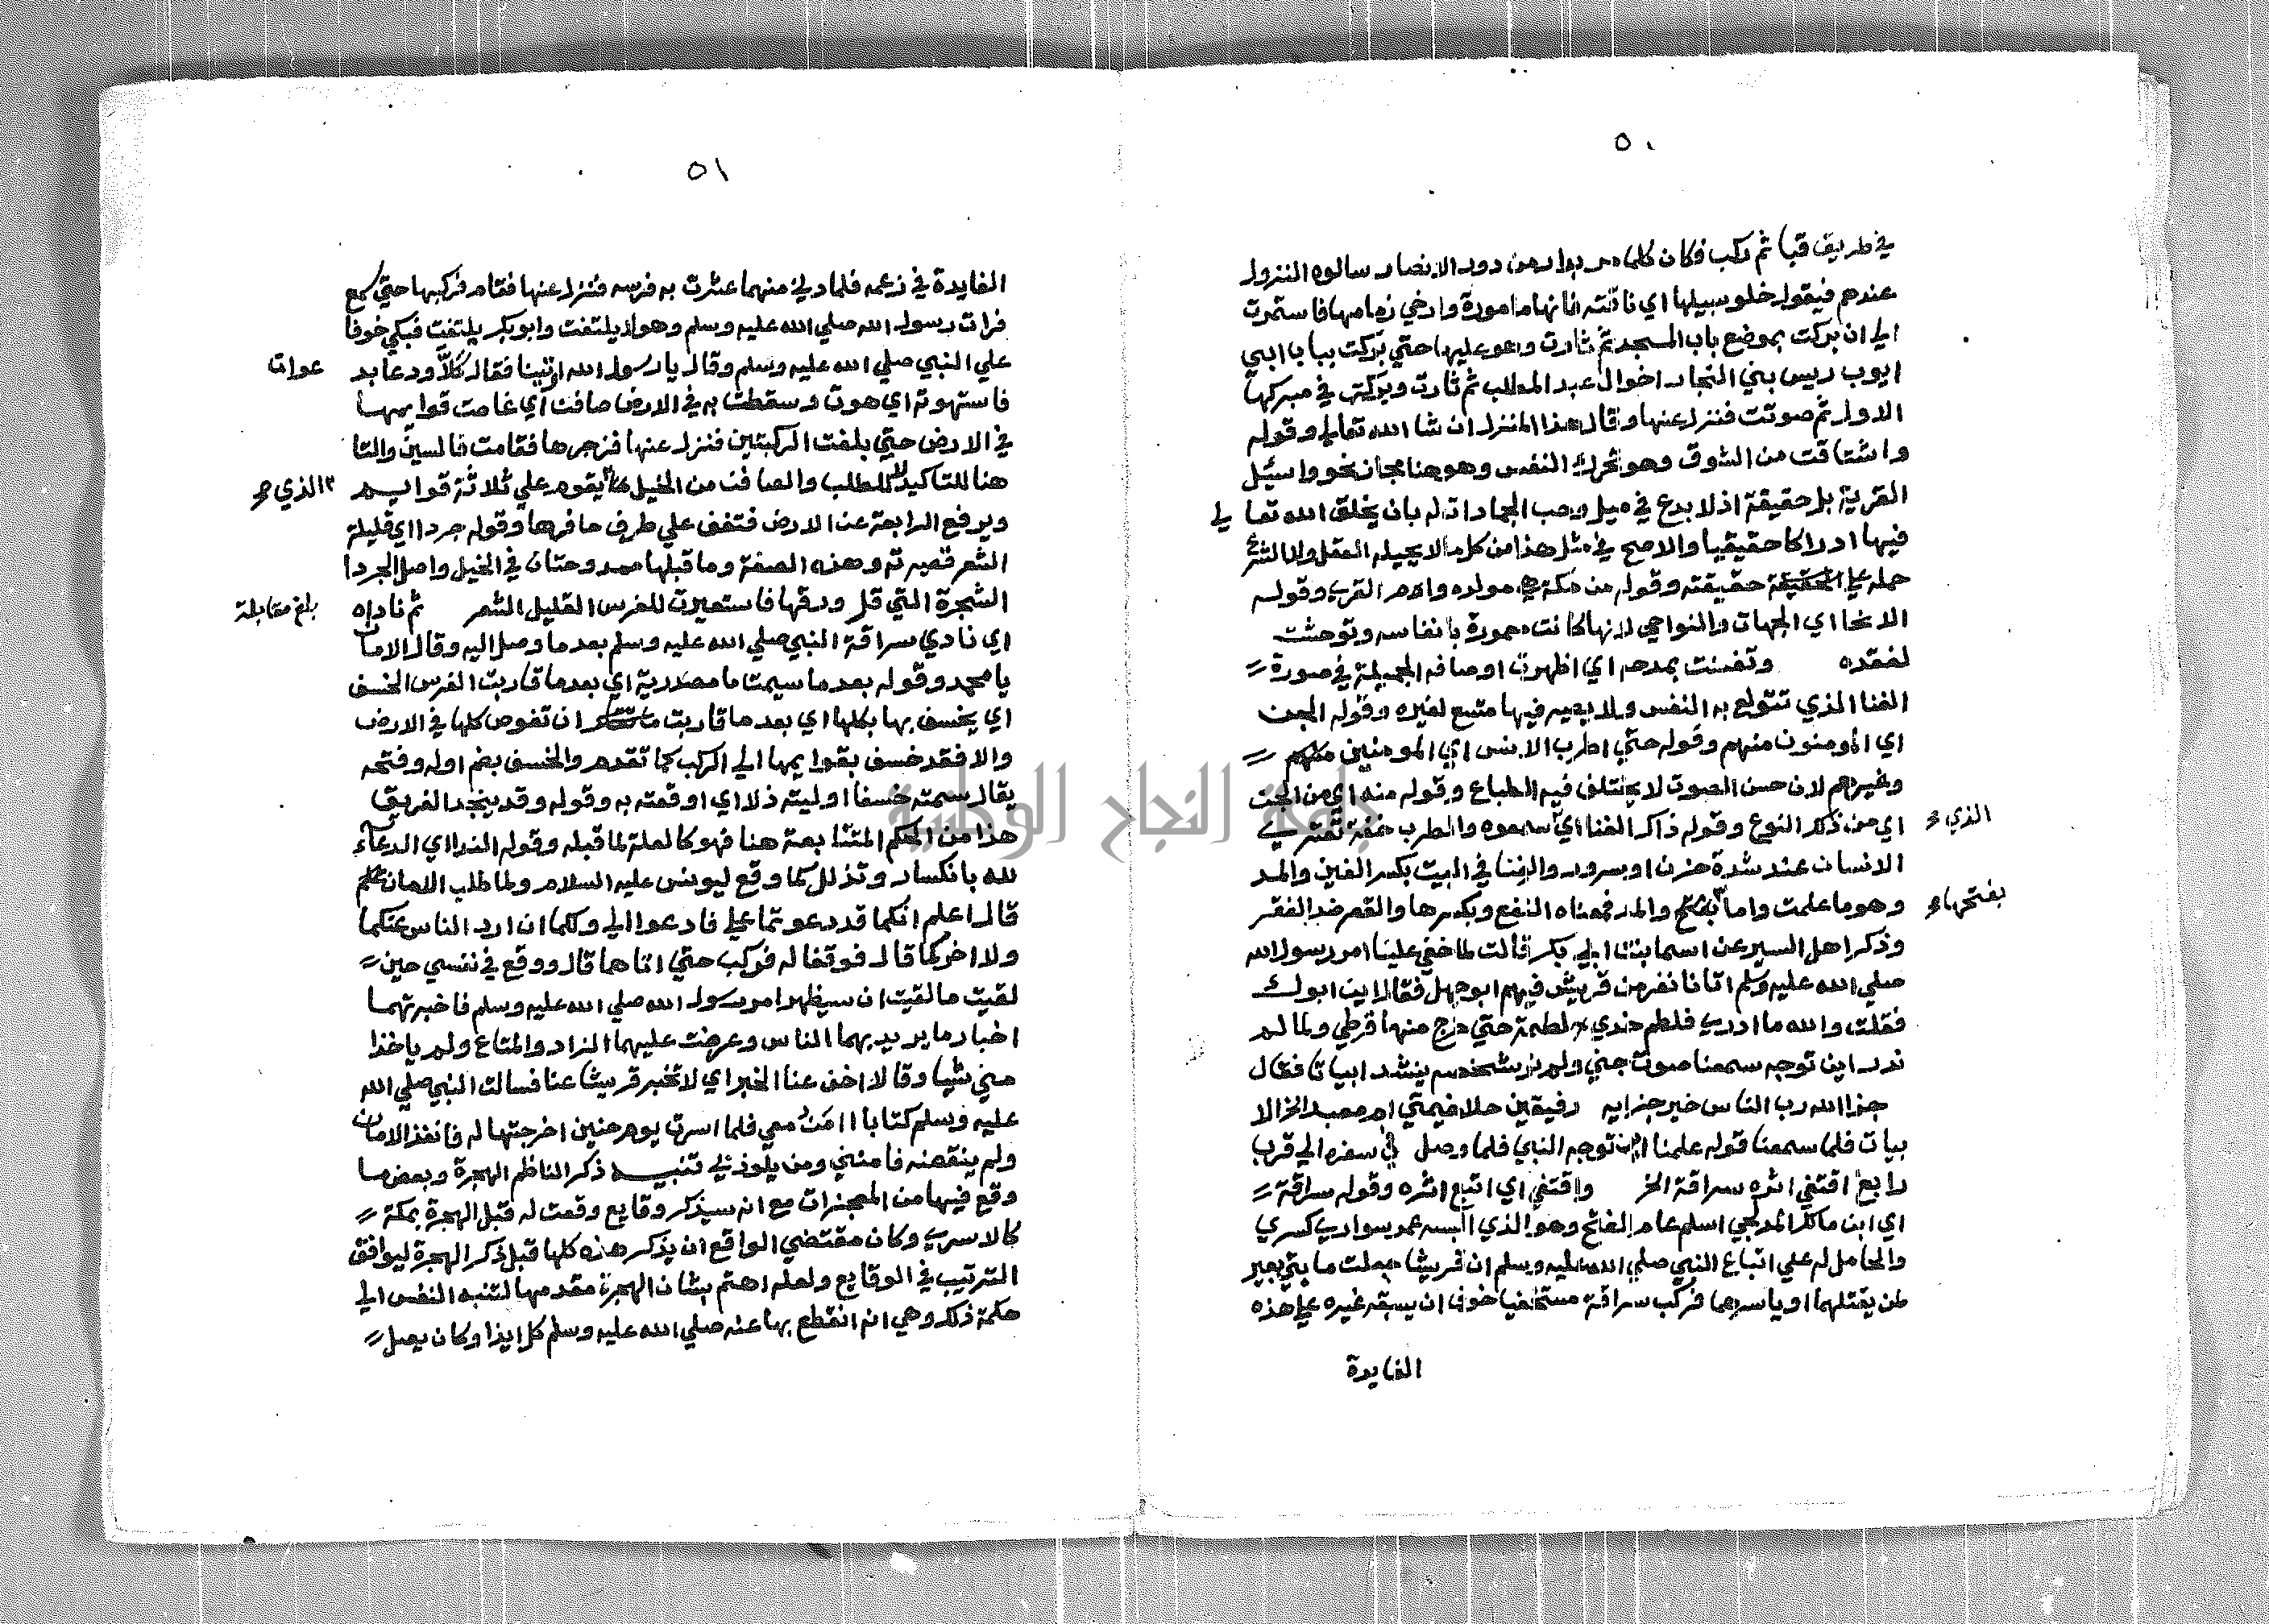 ٥٠
في طريق قبا ثم ركب فكان كلما مر بدار من دور الانصار سالوه النزول
عندهم فيقول خلو سبيلها اي ناقته فانها مامورة وارخي زمامها فاستمرت
الي ان بركت بموضع باب المسجد ثم ثارت وهو عليها حتي بركت بباب ابي
ايوب ريس بني النجار اخوال عبد المطلب ثم ثارت وبركت في مبركها
الاول ثم صوتت فنزل عنها وقال هذا المنزل ان شا الله تعالي وقوله
واشتاقت من الشوق وهو تحرك النفس وهو هنا مجاز نحو واسئل
القرية بل حقيقة اذ لا بدع في ميل وحب الجمادات له بان يخلق الله تعالي
فيها ادراكا حقيقيا والاصح في مثل هذا من كل ما لا يحيله العقل ولا الشرع
حمله علي حقيقته وقوله من مكة هي مولده وام القري وقوله
الانحا اي الجهات والنواحي لانها كانت معمورة بانفاسه وتوحشت
لفقده وتغنت بمدحه اي اظهرت اوصافه الجميلة في صورة
الغنا الذي تتولع به النفس ولا يبقي فيها متسع لغيره وقوله الجن
اي المومنون منهم وقوله حتي اطرب الانس اي المومنين منهم
وغيرهم لان حسن الصوت لا يختلف فيه الطباع وقوله منه اي من الجن
اي من ذكر النوع وقوله ذاك الغنا اي سمعوه والطرب خفة تعتري
الذي
الانسان عند شدة حزن او سرور والغنا في البيت بكسر الغين والمد
وهو ما علمت واما بفتح والمد فمعناه النفع وبكسرها والقصر ضد الفقر
بفتحها
وذكر اهل السير عن اسما بنت ابي بكر قالت لما خفي علينا امر رسول الله
صلي الله عليه وسلم اتانا نفر من قريش فيهم ابو جهل فقال اين ابوك
فقلت والله ما ادري فلطم خدي لطمة حتي خرج منها قرطي ولما لم
ندر اين توجه سمعنا صوت جني ولم نر شخصه ينشد ابياتا فقال
جزا الله رب الناس خير جزايه رفيقين حلا خيمتي ام معبد الخ الا
بيات فلما سمعنا قوله علمنا اين توجه النبي فلما وصل في سفره الي قرب
رابغ اقتفي اثره سراقة الخ واقتفي اي اتبع اثره وقوله سراقة
اي ابن مالك المدلجي اسلم عام الفتح وهو الذي البسه عمر سواري كسري
والحامل له علي اتباع النبي صلي الله عليه وسلم ان قريشا جعلت مايتي بعير
لمن يقتلهما او ياسرهما فركب سراقة مستخفيا خوف ان يسبقه غيره علي هذه
الفايدة
٥١
الفايدة في زعمه فلما دني منهما عثرت به فرسه فنزل عنها فقام فركبها حتي سمع
قرات رسول الله صلي الله عليه وسلم وهو لا يلتفت وابو بكر يلتفت فبكي خوفا
علي النبي صلي الله عليه وسلم وقال يا رسول الله اتينا فقال كلا ودعا بد
عوات
فاستهوته اي هوت وسقطت به في الارض صافن اي غاصت قوايمها
في الارض حتي بلغت الركبتين فنزل عنها فزجرها فقامت فالسين والتا
هنا للتاكيد لا للطلب والصافن من الخيل يقوم علي ثلاثة قوايم
الذي
ويرفع الرابعة عن الارض فتقف علي طرف حافرها وقوله جردا اي قليلة
الشعر قصيرته وهذه الصفة وما قبلها ممدوحتان في الخيل واصل الجردا
الشجرة التي قل ورقها فاستعيرت للفرس القليل الشعر ثم ناداه
بلغ مقابلة
اي نادي سراقة النبي صلي الله عليه وسلم بعد ما وصل اليه وقال الامان
يا محمد وقوله بعد ما سيمت ما مصدرية اي بعد ما قاربت الفرس الخسف
اي يخسف بها بكلها اي بعد ما قاربت ان تغوص كلها في الارض
والا فقد خسف بقوايمها الي الركب كما تقدم والخسف بضم اوله وفتحه
يقال سمته خسفا اوليته ذلا اي اوقعته به وقوله وقد ينجد الغريق
هذا من الحكم المتتابعة هنا فهو كالعلة لما قبله وقوله الندا اي الدعاء
لله بانكسار وتذلل كما وقع ليونس عليه السلام ولما طلب الامان منهم
قال اعلم انكما قد دعوتما علي فادعوا لي ولكما ان ارد الناس عنكما
ولا اضركما قال فوقفا له فركب حتي اتاهما قال ووقع في نفسي حين
لقيت ما لقيت ان سيظهر امر رسول الله صلي الله عليه وسلم فاخبرتهما
اخبار ما يريد بهما الناس وعرضت عليهما الزاد والمتاع ولم ياخذا
مني شيا وقالا اخف عنا الخبر اي لا تخبر قريشا عنا فسالت النبي صلي الله
عليه وسلم كتابا امن معي فلما اسرت يوم حنين اخرجتها له فانفذ الامان
ولم ينقصه فامنني ومن يلوذ بي تنبيه ذكر الناظم الهجرة وبعض ما
وقع فيها من المعجزات مع انه سيذكر وقايع وقعت له قبل الهجرة بمكة
كالاسري وكان مقتضي الواقع ان يذكر هذه كلها قبل ذكر الهجرة ليوافق
الترتيب في الوقايع ولعله اهتم بشان الهجرة فقدمها لتنبه النفس الي
حكمة ذلك وهي انه انقطع بها عنه صلي الله عليه وسلم كل ايذا وكان يصل
جامعة النجاح الوطنية